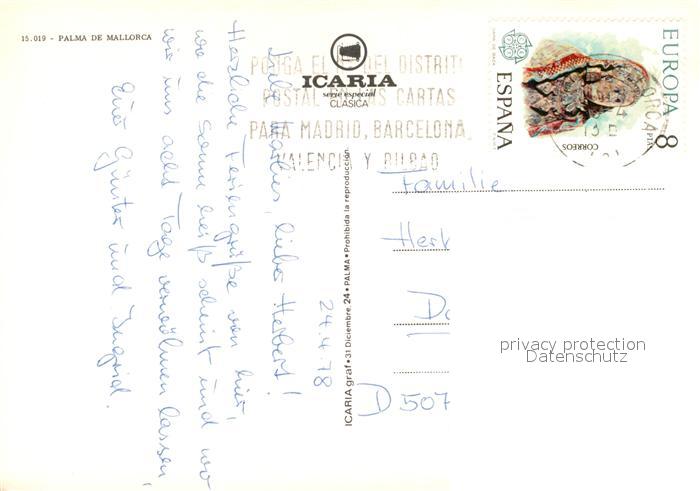 15.019 - PALMA DE MALLORCA
ICARIA
serie especial
CLASICA
PONGA EL DEL DISTRIT
POSTAL EN SUS CARTAS
PARA MADRID, BARCELONA,
VALENCIA Y BILBAO
EUROPA
8
PTA
ESPAÑA
CORREOS
24.4.78
lieber Herbert!
Herzliche Feriengrüße von hier,
wo die Sonne heiß scheint und wo
wir uns acht Tage verwöhnen lassen,
Eure Günter und Ingrid.
ICARIA graf • 31 Diciembre 24 • PALMA • Prohibida la reproducción
Familie
Herb
Do
D 507
privacy protection
Datenschutz